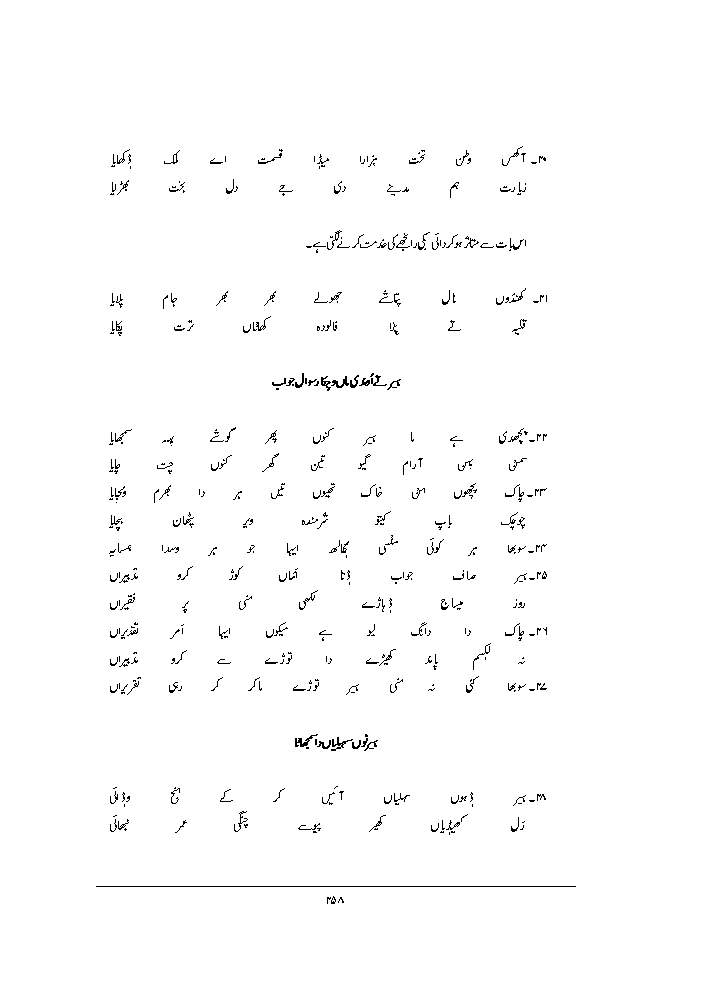 ۲۰۔ آکھس وطن تخت ہزارا میڈا قسمت اے ملک ݙکھایا
زیارت ہم مدینے دی جے دل بخت بھڑایا
اس بات سے متاثر ہو کر دائی بکی رانجھے کی خدمت کرنے لگتی ہے۔
۲۱۔ کھنڈوں نال پتاشے جھولے بھر بھر جام پلایا
قلیہ تے پلا فالودہ کھاناں ترت پکایا
ہیر تے اُندی ماں وچکار سوال جواب
۲۲۔ پچھدی ہے ما ہیر کنوں پھر گوشے بہہ سمجھایا
سمنی بسی آرام گیو تین گھر کنوں چت چایا
۲۳۔ چاک پچھوں اسی خاک تھیوں تیں ہر دا بھرم ونجایا
چوچک باپ کیتو شرمندہ ویر پٹھان بچایا
۲۴۔ سوبھا ہر کوئی مفسی ڳالھ ایہا جو ہر وسدا ہمسایہ
۲۵۔ ہیر صاف جواب ݙتا اماں کوڑ کرو تدبیراں
روز میثاج ݙہاڑے لکھی منی پر فقیراں
۲۶۔ چاک دا دانگ لیو ہے میکوں ایہا اَمر تقدیراں
نہ لہسم پاند کھیڑے دا توڑے سے کرو تدبیراں
۲۷۔ سوبھا کئی نہ منی ہیر توڑے ماکر کر رہی تقریراں
ہیر نوں سہیلیاں دا سمجھانا
۲۸۔ ہیر ݙہوں سہلیاں آئیں کر کے انج وݙائی
رَل کھیڈیاں کھیر پیوسے چنگی عمر نبھائی
۲۵۸